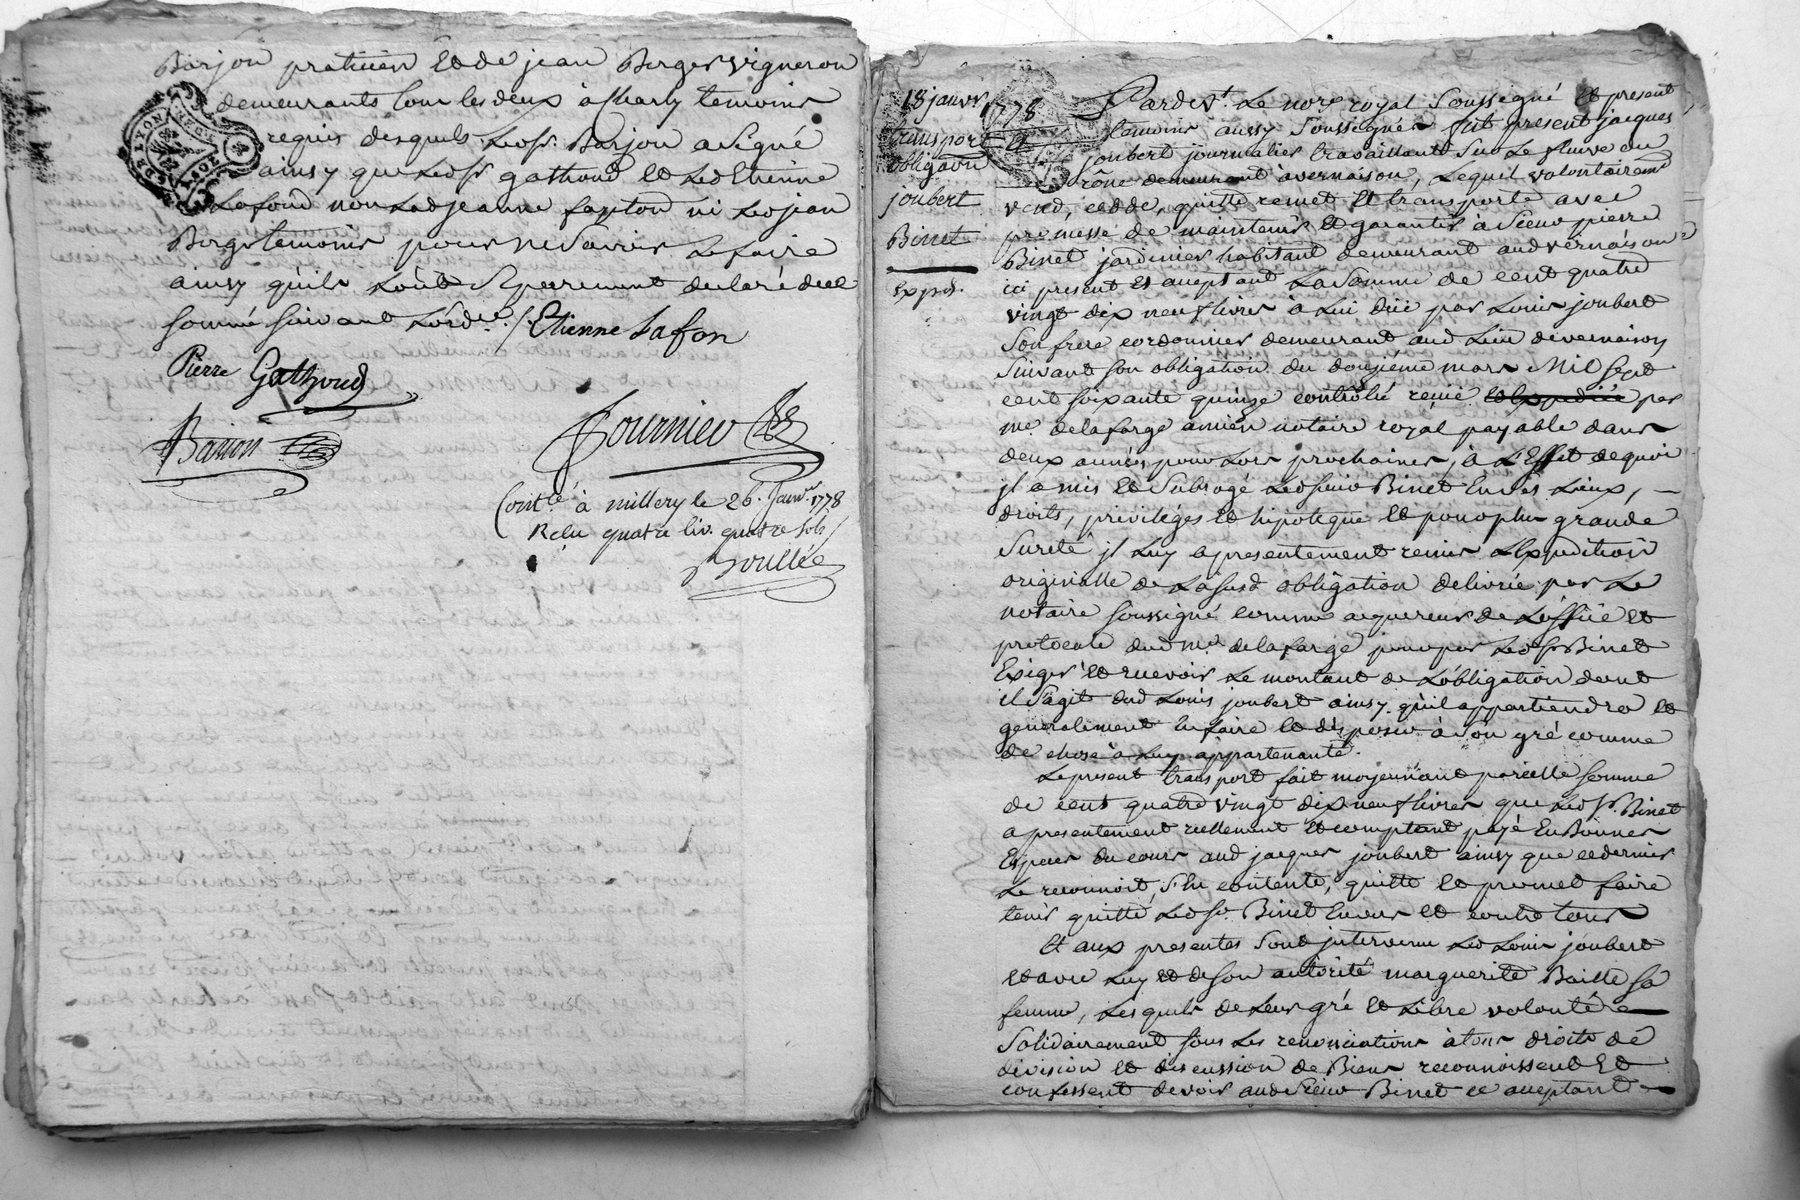 Barjon praticien et de jean Berger vigneron
demeurants tous les deux à Charly temoins
requis desquels ledsr. Barjon a signé
ainsy que ledsr gathoud et led Etienne
Lafond non lad jeanne ni led jean
Berger temoins pour ne savoir le faire
ainsy qu'ils l'ont separement declaré de ce
sommé suivant l'ord.ce ./. Etienne Lafon
Pierre Gathoud
Barjon
Fournier
Contlé à millery le 26. Janvr. 1778
Reçu quatre liv. quatre sols /
Boullée
18 janvr 1778
transport
obligaon
joubert
à
Binet
expd.
Pardevt. Le nore royal soussigné et present
temoins aussy soussignés fut present jacques
joubert journalier travaillant sur le fleuve du
rône demeurant a vernaison, lequel volontairemt
vend, cedde, quitte remet et transporte avec
promesse de maintenir et garantir à sieur pierre
Binet jardinier habitant demeurant aud vernaison
ici present et acceptant la somme de cent quatre
vingt dix neuf livres à lui düe par Louis joubert
son frere cordonnier demeurant aud lieu de vernaison
suivant son obligation du douzième mars Mil sept
cent soixante quinze contrôlée reçüe et expediée par
me. delafarge ancien notaire royal payable dans
deux années pour lors prochaines, à l'Effet de quoi
il a mis et subrogé led sieur Binet en ses Lieux, —
droits, privilèges et hipoteque et pour plus grande
sureté jl luy a presentement remis l'Expedition
originalle de la susd obligation delivrée par le
notaire soussigné comme acquereur de l'office et
protocole dud me delafarge pour par led sr Binet
Exiger et recevoir le montant de l'obligation dont
il s'agit dud Louis joubert ainsy qu'il appartiendra et
generalement en faire et disposer à son gré comme
de chose à luy appartenante.
Le present transport fait moyennant pareille somme
de cent quatre vingt dix neuf livres que led sr. Binet
a presentement réellement et comptant payé en Bonnes
Especes du cours aud jacques joubert ainsy que ce dernier
le reconnoit s'en contente, quitte et promet faire
tenir quitte led sr. Binet envers et contre tous
Et aux presentes sont jntervenu led Louis joubert
et avec luy et de son autorité marguerite Baille sa
femme, Lesquels de leur gré et libre volonté —
solidairement sous les renonciations à tous droits de
division et discussion de Biens reconnoissent et
confessent devoir aud sieur Binet ce acceptant —